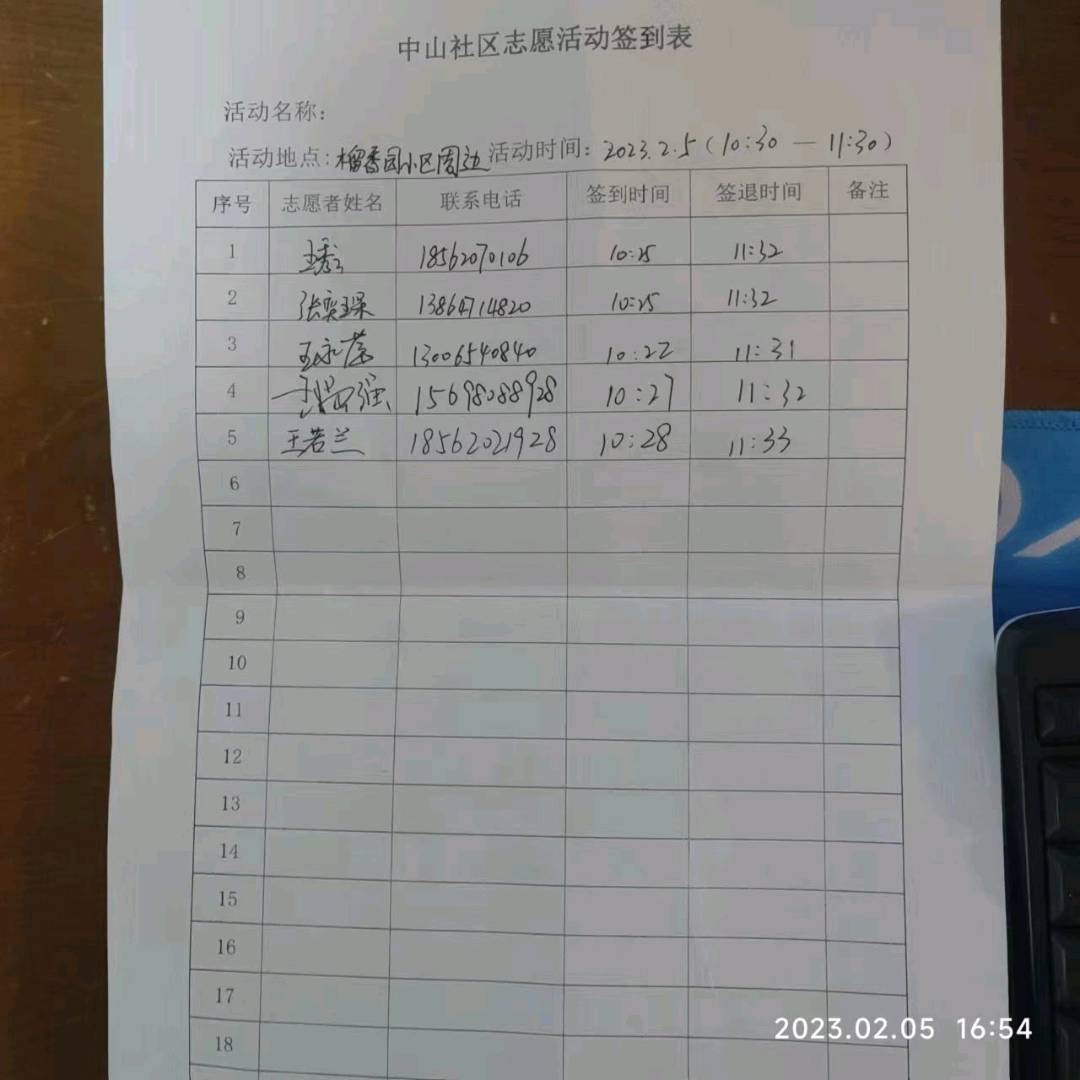 中山社区志愿活动签到表
活动名称:
活动地点:榴香园小区周边 活动时间: 2023.2.5 (10:30 — 11:30)
序号 志愿者姓名 联系电话 签到时间 签退时间 备注
1 18562070106 10:25 11:32
2 13864714820 10:25 11:32
3 13006540840 10:22 11:31
4 15698088928 10:27 11:32
5 王若兰 18562021928 10:28 11:33
6
7
8
9
10
11
12
13
14
15
16
17
18
2023.02.05 16:54